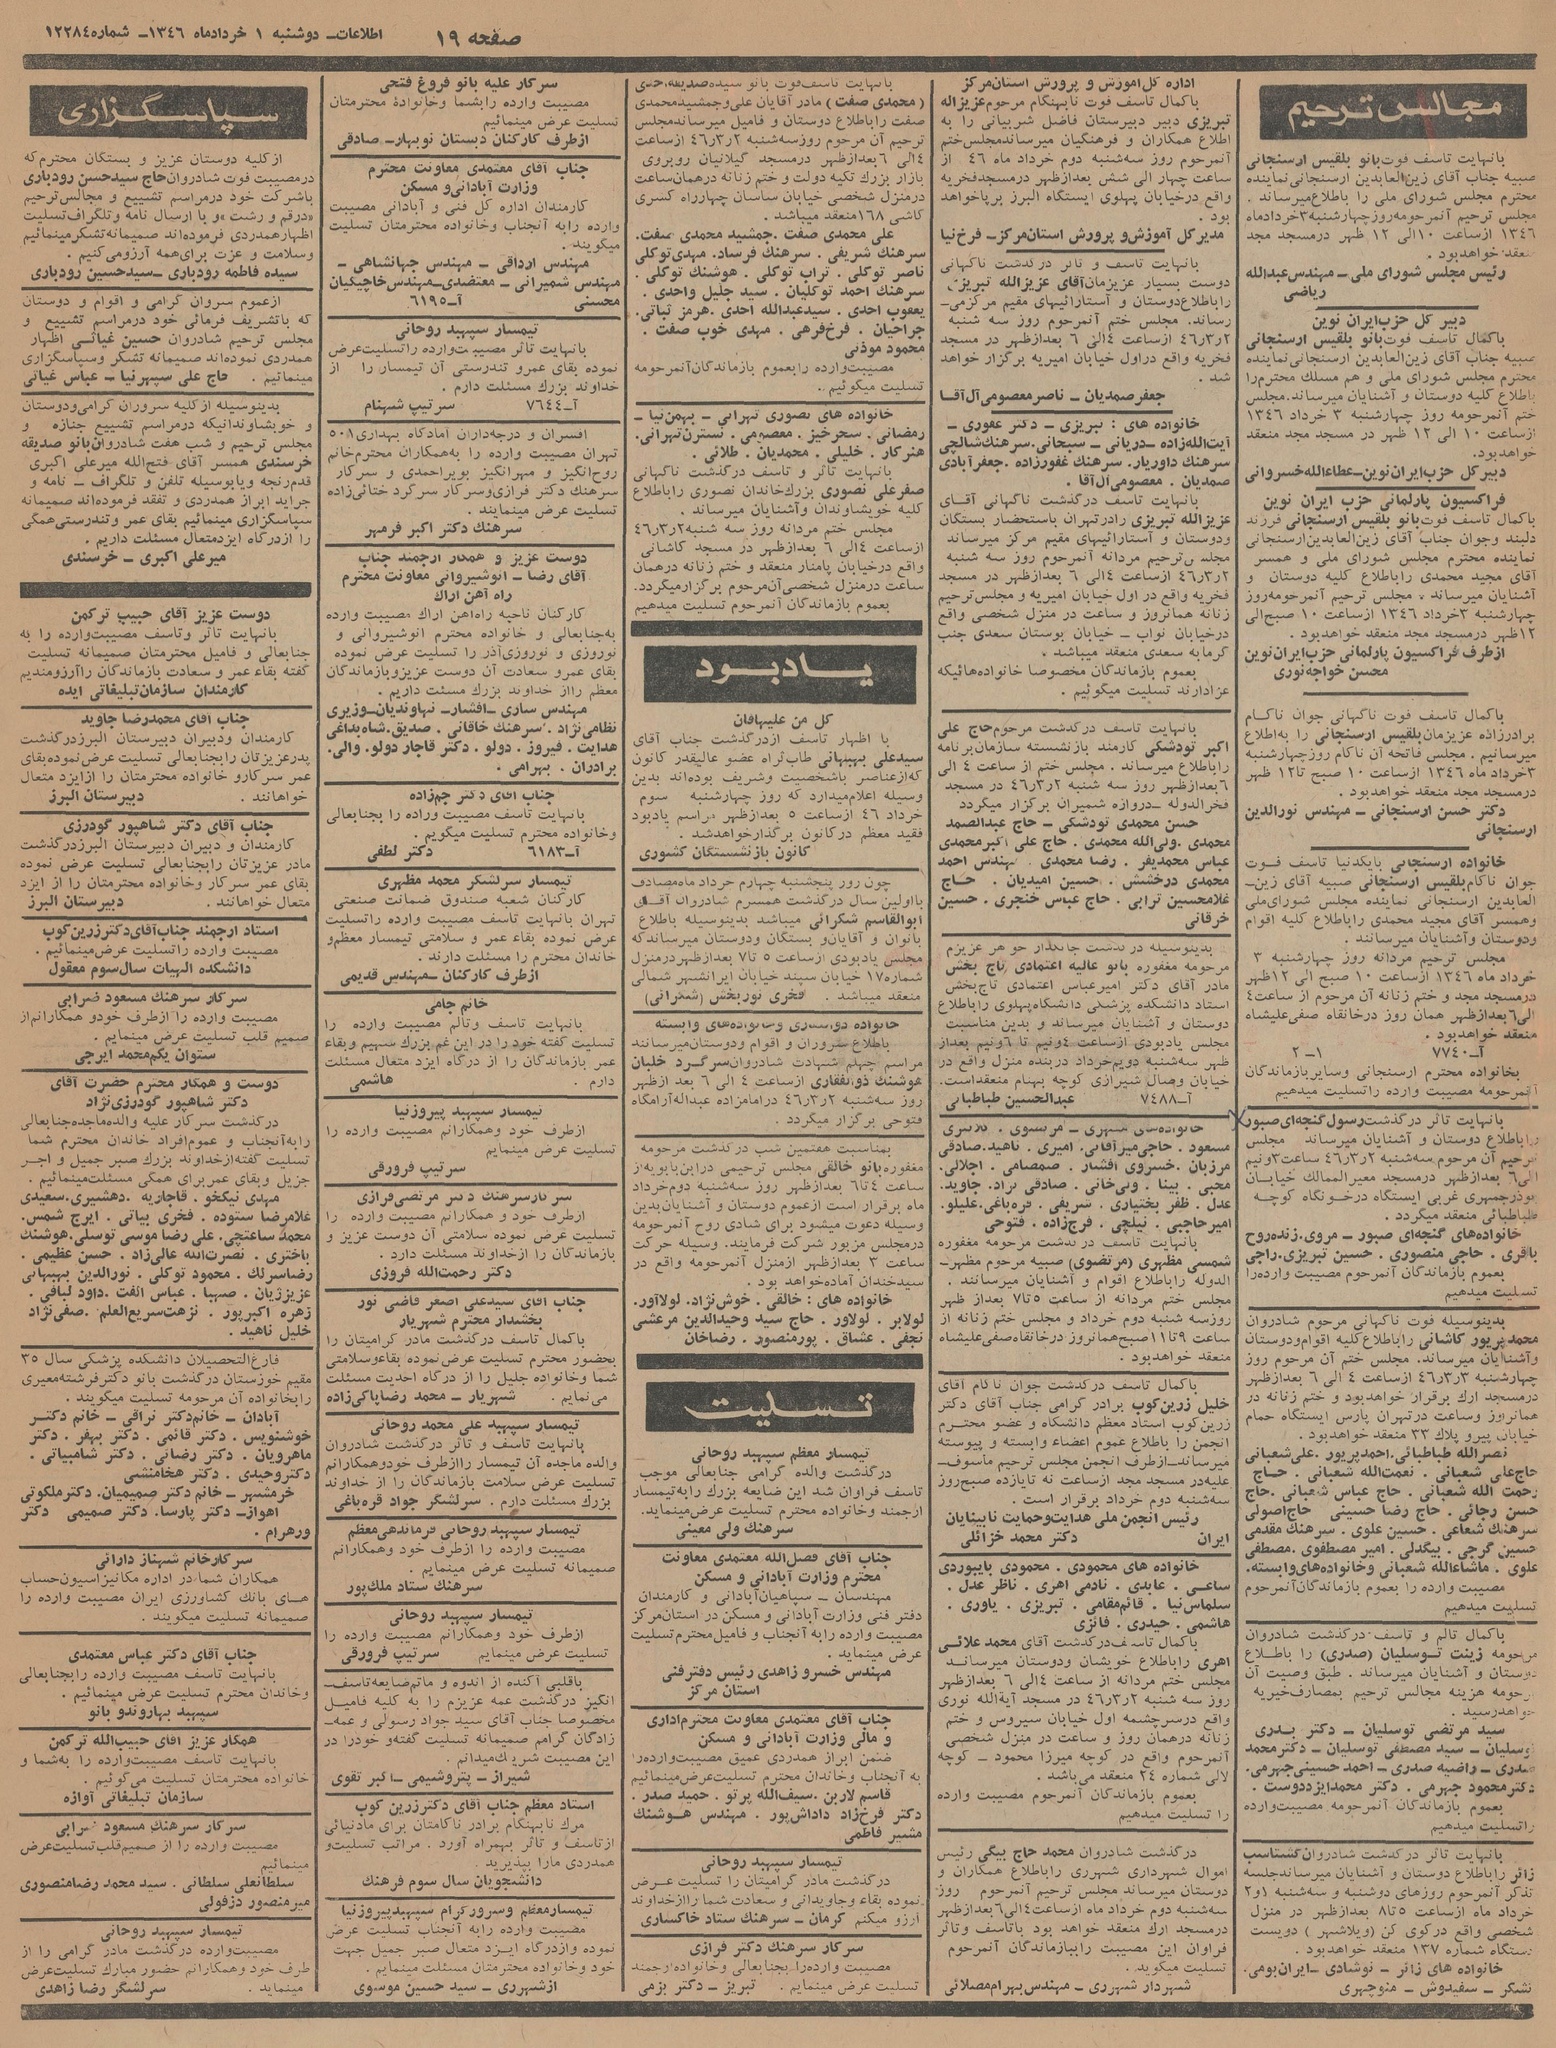 صفحه ۱۹
اطلاعات - دوشنبه ۱ خردادماه ۱۳۴۶ - شماره ۱۲۲۸۴
مجالس ترحیم
بانهایت تاسف فوت بانو بلقیس ارسنجانی
صبیه جناب آقای زین‌العابدین ارسنجانی نماینده
محترم مجلس شورای ملی را باطلاع میرساند .
مجلس ترحیم آنمرحومه روز چهارشنبه ۳ خردادماه
۱۳۴۶ از ساعت ۱۰ الی ۱۲ ظهر درمسجد مجد
منعقد خواهد بود .
رئیس مجلس شورای ملی - مهندس عبدالله
ریاضی
دبیر کل حزب ایران نوین
باکمال تاسف فوت بانو بلقیس ارسنجانی
صبیه جناب آقای زین‌العابدین ارسنجانی نماینده
محترم مجلس شورای ملی و هم مسلک محترم را
باطلاع کلیه دوستان و آشنایان میرساند. مجلس
ختم آنمرحومه روز چهارشنبه ۳ خرداد ۱۳۴۶
ازساعت ۱۰ الی ۱۲ ظهر در مسجد مجد منعقد
خواهد بود.
دبیر کل حزب ایران نوین - عطاءالله خسروانی
فراکسیون پارلمانی حزب ایران نوین
باکمال تاسف فوت بانو بلقیس ارسنجانی فرزند
دلبند وجوان جناب آقای زین‌العابدین ارسنجانی
نماینده محترم مجلس شورای ملی و همسر
آقای مجید محمدی را باطلاع کلیه دوستان و
آشنایان میرساند . مجلس ترحیم آنمرحومه روز
چهارشنبه ۳ خرداد ۱۳۴۶ ازساعت ۱۰ صبح الی
۱۲ ظهر درمسجد مجد منعقد خواهد بود .
ازطرف فراکسیون پارلمانی حزب ایران نوین
محسن خواجه نوری
باکمال تاسف فوت ناگهانی جوان ناکام
برادرزاده عزیزمان بلقیس ارسنجانی را به اطلاع
میرسانیم . مجلس فاتحه آن ناکام روز چهارشنبه
۳ خرداد ماه ۱۳۴۶ از ساعت ۱۰ صبح تا ۱۲ ظهر
درمسجد مجد منعقد خواهد بود .
دکتر حسن ارسنجانی - مهندس نورالدین
ارسنجانی
خانواده ارسنجانی بایکدنیا تاسف فوت
جوان ناکام بلقیس ارسنجانی صبیه آقای زین-
العابدین ارسنجانی نماینده مجلس شورای ملی
وهمسر آقای مجید محمدی را باطلاع کلیه اقوام
ودوستان وآشنایان میرسانند .
مجلس ترحیم مردانه روز چهارشنبه ۳
خرداد ماه ۱۳۴۶ ازساعت ۱۰ صبح الی ۱۲ ظهر
درمسجد مجد و ختم زنانه آن مرحوم از ساعت ۴
الی ۶ بعدازظهر همان روز درخانقاه صفی‌علیشاه
منعقد خواهد بود.
آ-۷۷۴۰ ۱-۲
بخانواده محترم ارسنجانی وسایر بازماندگان
آنمرحومه مصیبت وارده را تسلیت میدهیم
بانهایت تاثر درگذشت رسول گنجه‌ای صبور
را باطلاع دوستان و آشنایان میرساند مجلس
ترحیم آن مرحوم سه‌شنبه ۴۶٫۳٫۲ ساعت ۳ونیم
الی ۶ بعدازظهر درمسجد معیرالممالک خیابان
بوذرجمهری غربی ایستگاه درخونگاه کوچه
طباطبائی منعقد میگردد .
خانواده‌های گنجه‌ای صبور - مروی. زنده روح
باقری . حاجی منصوری . حسین تبریزی. راجی
بعموم بازماندگان آنمرحوم مصیبت وارده را
تسلیت میدهیم
بدینوسیله فوت ناگهانی مرحوم شادروان
محمد پرپور کاشانی را باطلاع کلیه اقوام ودوستان
وآشنایان میرساند. مجلس ختم آن مرحوم روز
چهارشنبه ۴۶٫۳٫۳ ازساعت ۴ الی ۶ بعدازظهر
درمسجد ارک برقرار خواهد بود و ختم زنانه در
همانروز وساعت درتهران پارس ایستگاه حمام
خیابان پیرو پلاک ۳۳ منعقد خواهد بود.
نصرالله طباطبائی. احمد پرپور .علی شعبانی
حاج علی شعبانی . نعمت‌الله شعبانی . حاج
رحمت الله شعبانی . حاج عباس شعبانی .حاج
حسن رجائی . حاج رضا حسینی حاج اصولی
سرهنگ شعاعی . حسین علوی . سرهنگ مقدمی
حسین گرجی . بیگدلی . امیر مصطفوی .مصطفی
علوی . ماشاءالله شعبانی وخانواده‌های وابسته.
مصیبت وارده را بعموم بازماندگان آنمرحوم
تسلیت میدهیم
باکمال تالم و تاسف درگذشت شادروان
مرحومه زینت توسلیان (صدری) را باطلاع
دوستان و آشنایان میرساند . طبق وصیت آن
مرحومه هزینه مجالس ترحیم بمصارف خیریه
خواهد رسید .
سید مرتضی توسلیان - دکتر بدری
توسلیان - سید مصطفی توسلیان - دکتر محمد
صدری - راضیه صدری - احمد حسینی جهرمی.
دکتر محمود جهرمی . دکتر محمد ایزددوست .
بعموم بازماندگان آنمرحومه مصیبت وارده
را تسلیت میدهیم
بانهایت تاثر درگذشت شادروان گشتاسب
زائر را باطلاع دوستان و آشنایان میرساند جلسه
تذکر آنمرحوم روزهای دوشنبه و سه‌شنبه ۱و۲
خرداد ماه از ساعت ۵ تا ۸ بعدازظهر در منزل
شخصی واقع در کوی کن (ویلا شهر) دویست
دستگاه شماره ۱۳۷ منعقد خواهد بود .
خانواده های زائر - نوشادی - ایران بومی.
تشگر - سفیدوش - منوچهری
اداره کل آموزش و پرورش استان مرکز
باکمال تاسف فوت نابهنگام مرحوم عزیزاله
تبریزی دبیر دبیرستان فاضل شربیانی را به
اطلاع همکاران و فرهنگیان میرساند مجلس ختم
آنمرحوم روز سه شنبه دوم خرداد ماه ۴۶ از
ساعت چهار الی شش بعدازظهر درمسجد فخریه
واقع درخیابان پهلوی ایستگاه البرز برپا خواهد
بود .
مدیر کل آموزش و پرورش استان مرکز - فرخ نیا
بانهایت تاسف و تاثر درگذشت ناگهانی
دوست بسیار عزیزمان آقای عزیزالله تبریزی
را باطلاع دوستان و آستارائیهای مقیم مرکز می-
رساند. مجلس ختم آنمرحوم روز سه شنبه
۴۶٫۳٫۲ ازساعت ۴ الی ۶ بعدازظهر در مسجد
فخریه واقع دراول خیابان امیریه برگزار خواهد
شد .
جعفر صمدیان - ناصر معصومی آل آقا
خانواده های : تبریزی - دکتر غفوری -
آیت‌الله زاده - دریانی - سبحانی. سرهنگ شالچی
سرهنگ داورپار. سرهنگ غفورزاده . جعفرآبادی
صمدیان . معصومی آل آقا .
بانهایت تاسف درگذشت ناگهانی آقای
عزیزالله تبریزی را در تهران باستحضار بستگان
ودوستان و آستارائیهای مقیم مرکز میرساند
مجلس ترحیم مردانه آنمرحوم روز سه شنبه
۴۶٫۳٫۲ ازساعت ۴ الی ۶ بعدازظهر در مسجد
فخریه واقع در اول خیابان امیریه و مجلس ترحیم
زنانه همانروز و ساعت در منزل شخصی واقع
درخیابان نواب - خیابان بوستان سعدی جنب
گرمابه سعدی منعقد میباشد .
بعموم بازماندگان مخصوصا خانواده هائیکه
عزادارند تسلیت میگوئیم .
بانهایت تاسف درگذشت مرحوم حاج علی
اکبر تودشکی کارمند بازنشسته سازمان برنامه
را باطلاع میرساند . مجلس ختم از ساعت ۴ الی
۶ بعدازظهر روز سه شنبه ۴۶٫۳٫۲ در مسجد
فخرالدوله - دروازه شمیران برگزار میگردد
حسن محمدی تودشکی - حاج عبدالصمد
محمدی .ولی‌الله محمدی . حاج علی اکبر محمدی
عباس محمدیفر . رضا محمدی . مهندس احمد
محمدی درخشش . حسین امیدیان . حاج
غلامحسین ترابی . حاج عباس خنجری . حسین
خرقانی
بدینوسیله درگذشت جانگداز خواهر عزیزم
مرحومه مغفوره بانو عالیه اعتمادی تاج بخش
مادر آقای دکتر امیرعباس اعتمادی تاج‌بخش
استاد دانشکده پزشکی دانشگاه پهلوی را باطلاع
دوستان و آشنایان میرساند و بدین مناسبت
مجلس یادبودی از ساعت ۴ونیم تا ۶ونیم بعداز
ظهر سه‌شنبه دوم خرداد در بنده منزل واقع در
خیابان وصال شیرازی کوچه بهنام منعقد است.
آ-۷۴۸۸ عبدالحسین طباطبائی
مسعود . حاجی میرآقائی. امیری . ناهید. صادقی
مرزبان. خسروی افشار . صمصامی . اجلالی.
محبی . بینا . ولی‌خانی . صادقی نراد. جاوید.
عدل . ظفر بختیاری . شریفی . قره‌باغی. علیلو.
امیر حاجبی . نیلچی . فرج‌زاده . فتوحی
بانهایت تاسف درگذشت مرحومه مغفوره
شمسی مظهری (مرتضوی) صبیه مرحوم مظهر-
الدوله را باطلاع اقوام و آشنایان میرسانند .
مجلس ختم مردانه از ساعت ۵ تا ۷ بعداز ظهر
روز سه شنبه دوم خرداد و مجلس ختم زنانه از
ساعت ۹ تا ۱۱ صبح همانروز درخانقاه صفی‌علیشاه
منعقد خواهد بود .
باکمال تاسف درگذشت جوان ناکام آقای
خلیل زرین‌کوب برادر گرامی جناب آقای دکتر
زرین‌کوب استاد معظم دانشگاه و عضو محترم
انجمن را باطلاع عموم اعضاء وابسته و پیوسته
میرساند - ازطرف انجمن مجلس ترحیم ماسوف-
علیه درمسجد مجد ازساعت نه تا یازده صبح روز
سه‌شنبه دوم خرداد برقرار است .
رئیس انجمن ملی هدایت وحمایت نابینایان
ایران دکتر محمد خزائلی
خانواده های محمودی . محمودی بایبوردی
ساعی . عابدی . نادمی اهری . ناظر عدل .
سلماس نیا . قائم‌مقامی . تبریزی . یاوری .
هاشمی . حیدری . فائزی
باکمال تاسف درگذشت آقای محمد علائی
اهری را باطلاع خویشان ودوستان میرساند
مجلس ختم مردانه از ساعت ۴ الی ۶ بعدازظهر
روز سه شنبه ۴۶٫۳٫۲ در مسجد آیه‌الله نوری
واقع درسرچشمه اول خیابان سیروس و ختم
زنانه درهمان روز و ساعت در منزل شخصی
آنمرحوم واقع در کوچه میرزا محمود - کوچه
لالی شماره ۲۴ منعقد می‌باشد .
بعموم بازماندگان آنمرحوم مصیبت وارده
را تسلیت میدهیم
درگذشت شادروان محمد حاج بیگی رئیس
اموال شهرداری شهرری را باطلاع همکاران و
دوستان میرساند مجلس ترحیم آنمرحوم روز
سه‌شنبه دوم خرداد ماه ازساعت ۴ الی ۶ بعدازظهر
درمسجد ارک منعقد خواهد بود باتاسف وتاثر
فراوان این مصیبت را ببازماندگان آنمرحوم
تسلیت میگوید .
شهردار شهرری - مهندس بهرام مصلائی
بانهایت تاسف فوت بانو سیده صدیقه
(محمدی صفت) مادر آقایان علی وجمشید محمدی
صفت را باطلاع دوستان و فامیل میرساند مجلس
ترحیم آن مرحوم روز سه‌شنبه ۴۶٫۳٫۲ ازساعت
۴ الی ۶ بعدازظهر درمسجد گیلانیان روبروی
بازار بزرگ تکیه دولت و ختم زنانه درهمان ساعت
درمنزل شخصی خیابان ساسان چهارراه کسری
کاشی ۱۶۸ منعقد میباشد .
علی محمدی صفت .جمشید محمدی صفت.
سرهنگ شریفی . سرهنگ فرساد. مهدی توکلی
ناصر توکلی . تراب توکلی . هوشنگ توکلی .
سرهنگ احمد توکلیان . سید جلیل واحدی .
یعقوب احدی . سید عبدالله احدی .هرمز ثباتی.
جراحیان . فرخ فرهی . مهدی خوب صفت .
محمود موذنی
مصیبت وارده را بعموم بازماندگان آنمرحومه
تسلیت میگوئیم .
خانواده های تصوری تهرانی - بهمن نیا -
رمضانی . سحرخیز . معصومی . نسترن تهرانی.
هنرکار . خلیلی . محمدیان . طلائی .
بانهایت تاثر و تاسف درگذشت ناگهانی
صفرعلی تصوری بزرگ خاندان تصوری را باطلاع
کلیه خویشاوندان وآشنایان میرساند .
مجلس ختم مردانه روز سه شنبه ۴۶٫۳٫۲
ازساعت ۴ الی ۶ بعدازظهر در مسجد کاشانی
واقع درخیابان پامنار منعقد و ختم زنانه درهمان
ساعت درمنزل شخصی آن مرحوم برگزار میگردد.
بعموم بازماندگان آنمرحوم تسلیت میدهیم
یادبود
کل من علیهافان
با اظهار تاسف ازدرگذشت جناب آقای
سیدعلی بهبهانی طاب ثراه عضو عالیقدر کانون
که از عناصر باشخصیت وشریف بوده‌اند بدین
وسیله اعلام میدارد که روز چهارشنبه سوم
خرداد ۴۶ از ساعت ۵ بعدازظهر مراسم یادبود
فقید معظم درکانون برگذار خواهد شد.
کانون بازنشستگان کشوری
چون روز پنجشنبه چهارم خرداد ماه مصادف
با اولین سال درگذشت همسرم شادروان آقای
ابوالقاسم شکرائی میباشد بدینوسیله باطلاع
بانوان و آقایان و بستگان ودوستان میرساند که
مجلس یادبودی ازساعت ۵ تا ۷ بعدازظهر درمنزل
شماره ۱۷ خیابان سپند خیابان ایرانشهر شمالی
منعقد میباشد . فخری نوربخش (شکرائی)
باطلاع سروران و اقوام ودوستان میرسانند
مراسم چهلم شهادت شادروان سرگرد خلبان
هوشنگ ذوالفقاری ازساعت ۴ الی ۶ بعد ازظهر
روز سه‌شنبه ۴۶٫۳٫۲ درامامزاده عبداله آرامگاه
فتوحی برگزار میگردد .
بمناسبت هفتمین شب درگذشت مرحومه
مغفوره بانو خالقی مجلس ترحیمی در ابن بابویه از
ساعت ۴ تا ۶ بعدازظهر روز سه‌شنبه دوم خرداد
ماه برقرار است ازعموم دوستان و آشنایان بدین
وسیله دعوت میشود برای شادی روح آنمرحومه
درمجلس مزبور شرکت فرمایند. وسیله حرکت
ساعت ۳ بعدازظهر ازمنزل آنمرحومه واقع در
سیدخندان آماده خواهد بود .
خانواده های : خالقی . خوش نژاد. لولاآور.
لولابر . لولاور . حاج سید وحیدالدین مرعشی
نجفی . عشاق . پورمنصور . رضاخان
تسلیت
تیمسار معظم سپهبد روحانی
درگذشت والده گرامی جنابعالی موجب
تاسف فراوان شد این ضایعه بزرگ را به تیمسار
ارجمند وخانواده محترم تسلیت عرض مینماید.
سرهنگ ولی معینی
جناب آقای فضل‌الله معتمدی معاونت
محترم وزارت آبادانی و مسکن
مهندسان - سپاهیان آبادانی و کارمندان
دفتر فنی وزارت آبادانی و مسکن در استان مرکز
مصیبت وارده را به آنجناب و فامیل محترم تسلیت
عرض مینماید.
مهندس خسرو زاهدی رئیس دفتر فنی
استان مرکز
جناب آقای معتمدی معاونت محترم اداری
و مالی وزارت آبادانی و مسکن
ضمن ابراز همدردی عمیق مصیبت وارده را
به آنجناب وخاندان محترم تسلیت عرض مینمائیم
قاسم لاربن. سیف‌الله پرتو . حمید صدر .
دکتر فرخ‌زاد داداش‌پور . مهندس هوشنگ
مشیر فاطمی
تیمسار سپهبد روحانی
درگذشت مادر گرامیتان را تسلیت عرض
نموده بقاء وجاویدانی و سعادت شما را از خداوند
آرزو میکنم کرمان - سرهنگ ستاد خاکساری
سرکار سرهنگ دکتر فرازی
مصیبت وارده را بجنابعالی وخانواده ارجمند
تسلیت عرض مینمایم . تبریز - دکتر بزمی
سرکار علیه بانو فروغ فتحی
مصیبت وارده را بشما وخانواده محترمتان
تسلیت عرض مینمائیم
ازطرف کارکنان دبستان نوبهار - صادقی
جناب آقای معتمدی معاونت محترم
وزارت آبادانی و مسکن
کارمندان اداره کل فنی و آبادانی مصیبت
وارده را به آنجناب وخانواده محترمتان تسلیت
میگویند .
مهندس ارداقی - مهندس جهانشاهی -
مهندس شمیرانی - معتضدی - مهندس خاچیکیان
محسنی آ-۶۱۹۵
تیمسار سپهبد روحانی
بانهایت تاثر مصیبت وارده را تسلیت عرض
نموده بقای عمر و تندرستی آن تیمسار را از
خداوند بزرگ مسئلت دارم .
آ-۷۶۴۴ سرتیپ شهنام
افسران و درجه‌داران آمادگاه بهداری ۵۰۱
تهران مصیبت وارده را به همکاران محترم خانم
روح‌انگیز و مهرانگیز بویراحمدی و سرکار
سرهنگ دکتر فرازی و سرکار سرگرد ختائی‌زاده
تسلیت عرض مینمایند .
سرهنگ دکتر اکبر فرمهر
دوست عزیز و همکار ارجمند جناب
آقای رضا - انوشیروانی معاونت محترم
راه آهن اراک
کارکنان ناحیه راه‌آهن اراک مصیبت وارده
به جنابعالی و خانواده محترم انوشیروانی و
نوروزی و نوروزی آذر را تسلیت عرض نموده
بقای عمر و سعادت آن دوست عزیز و بازماندگان
معظم را از خداوند بزرگ مسئلت داریم .
مهندس ساری - افشار - نهاوندیان - وزیری
نظامی نژاد . سرهنگ خاقانی . صدیق. شاه‌بداغی
هدایت . فیروز . دولو . دکتر قاجار دولو. والی.
برادران . بهرامی .
جناب آقای دکتر جم‌زاده
بانهایت تاسف مصیبت وارده را بجنابعالی
وخانواده محترم تسلیت میگویم .
آ-۶۱۸۳ دکتر لطفی
تیمسار سرلشگر محمد مظهری
کارکنان شعبه صندوق ضمانت صنعتی
تهران بانهایت تاسف مصیبت وارده را تسلیت
عرض نموده بقاء عمر و سلامتی تیمسار معظم و
خاندان محترم را مسئلت دارند.
ازطرف کارکنان - مهندس قدیمی
خانم جامی
بانهایت تاسف وتالم مصیبت وارده را
تسلیت گفته خود را در این غم بزرگ سهیم وبقاء
عمر بازماندگان را از درگاه ایزد متعال مسئلت
دارم . هاشمی
تیمسار سپهبد پیروزنیا
ازطرف خود وهمکارانم مصیبت وارده را
تسلیت عرض مینمایم
سرتیپ فرورقی
سرکار سرهنگ دکتر مرتضی فرازی
ازطرف خود و همکارانم مصیبت وارده را
تسلیت عرض نموده سلامتی آن دوست عزیز و
بازماندگان را ازخداوند مسئلت دارد .
دکتر رحمت‌الله فروزی
جناب آقای سیدعلی اصغر قاضی نور
بخشدار محترم شهریار
باکمال تاسف درگذشت مادر گرامیتان را
بحضور محترم تسلیت عرض نموده بقاء وسلامتی
شما وخانواده جلیل را از درگاه احدیت مسئلت
می‌نمایم . شهریار - محمد رضا پاکی‌زاده
تیمسار سپهبد علی محمد روحانی
بانهایت تاسف و تاثر درگذشت شادروان
والده ماجده آن تیمسار را ازطرف خود وهمکارانم
تسلیت عرض سلامت بازماندگان را از خداوند
بزرگ مسئلت دارم . سرلشگر جواد قره‌باغی
تیمسار سپهبد روحانی فرماندهی معظم
مصیبت وارده را ازطرف خود وهمکارانم
صمیمانه تسلیت عرض مینمایم .
سرهنگ ستاد ملک‌پور
تیمسار سپهبد روحانی
ازطرف خود وهمکارانم مصیبت وارده را
تسلیت عرض مینمایم سرتیپ فرورقی
باقلبی آکنده از اندوه و ماتم ضایعه تاسف-
انگیز درگذشت عمه عزیزم را به کلیه فامیل
مخصوصا جناب آقای سید جواد رسولی و عمه-
زادگان گرامم صمیمانه تسلیت گفته و خود را در
این مصیبت شریک میدانم .
شیراز - پتروشیمی - اکبر تقوی
استاد معظم جناب آقای دکتر زرین کوب
مرگ نابهنگام برادر ناکامتان برای ما دنیائی
ازتاسف و تاثر بهمراه آورد . مراتب تسلیت و
همدردی ما را بپذیرید .
دانشجویان سال سوم فرهنگ
تیمسار معظم وسرور گرام سپهبد پیروزنیا
مصیبت وارده را به آنجناب تسلیت عرض
نموده وازدرگاه ایزد متعال صبر جمیل جهت
خود وخانواده محترمتان مسئلت مینمایم .
ازشهرری - سید حسین موسوی
سپاسگزاری
از کلیه دوستان عزیز و بستگان محترم که
درمصیبت فوت شادروان حاج سیدحسن رودباری
باشرکت خود درمراسم تشییع و مجالس ترحیم
«درقم و رشت» و با ارسال نامه وتلگراف تسلیت
اظهار همدردی فرموده‌اند صمیمانه تشکر مینمائیم
وسلامت و عزت برای همه آرزو می کنیم .
سیده فاطمه رودباری - سیدحسین رودباری
ازعموم سروران گرامی و اقوام و دوستان
که باتشریف فرمائی خود درمراسم تشییع و
مجلس ترحیم شادروان حسین غیاثی اظهار
همدردی نموده‌اند صمیمانه تشکر وسپاسگزاری
مینمائیم . حاج علی سپهرنیا - عباس غیاثی
بدینوسیله ازکلیه سروران گرامی و دوستان
و خویشاوندانیکه درمراسم تشییع جنازه و
مجلس ترحیم و شب هفت شادروان بانو صدیقه
خرسندی همسر آقای فتح‌الله میرعلی اکبری
قدم رنجه ویا بوسیله تلفن و تلگراف - نامه و
جراید ابراز همدردی و تفقد فرموده‌اند صمیمانه
سپاسگزاری مینمائیم بقای عمر وتندرستی همگی
را ازدرگاه ایزدمتعال مسئلت داریم .
میرعلی اکبری - خرسندی
دوست عزیز آقای حبیب ترکمن
بانهایت تاثر وتاسف مصیبت وارده را به
جنابعالی و فامیل محترمتان صمیمانه تسلیت
گفته بقاء عمر و سعادت بازماندگان را آرزومندیم
کارمندان سازمان تبلیغاتی ایده
جناب آقای محمدرضا جاوید
کارمندان ودبیران دبیرستان البرز درگذشت
پدرعزیزتان را بجنابعالی تسلیت عرض نموده بقای
عمر سرکار و خانواده محترمتان را از ایزد متعال
خواهانند . دبیرستان البرز
جناب آقای دکتر شاهپور گودرزی
کارمندان و دبیران دبیرستان البرز درگذشت
مادر عزیزتان را بجنابعالی تسلیت عرض نموده
بقای عمر سرکار وخانواده محترمتان را از ایزد
متعال خواهانند . دبیرستان البرز
استاد ارجمند جناب آقای دکتر زرین کوب
مصیبت وارده را تسلیت عرض مینمائیم .
دانشکده الهیات سال سوم معقول
سرکار سرهنگ مسعود ضرابی
مصیبت وارده را ازطرف خود و همکارانم از
صمیم قلب تسلیت عرض مینمایم .
ستوان یکم محمد ایرجی
دوست و همکار محترم حضرت آقای
دکتر شاهپور گودرزی نژاد
درگذشت سرکار علیه والده ماجده جنابعالی
را به آنجناب و عموم افراد خاندان محترم شما
تسلیت گفته ازخداوند بزرگ صبر جمیل و اجر
جزیل وبقای عمر برای همگی مسئلت مینمائیم .
مهدی نیکخو . قاجاریه . دهشیری. سعیدی
غلامرضا ستوده . فخری بیاتی . ایرج شمس.
محمد ساعتچی. علی رضا موسی توسلی. هوشنگ
باختری . نصرت‌الله عالی‌زاد . حسن عظیمی .
رضا سرلک . محمود توکلی . نورالدین بهبهانی
عزیز ژیان . صهبا . عباس الفت . داود لبافی .
زهره اکبرپور . نزهت سریع‌العلم .صفی نژاد
خلیل ناهید .
فارغ‌التحصیلان دانشکده پزشکی سال ۳۵
مقیم خوزستان درگذشت بانو دکتر فرشته معیری
را بخانواده آن مرحومه تسلیت میگویند .
آبادان - خانم دکتر نراقی - خانم دکتر
خوشنویس . دکتر قائمی . دکتر بهفر . دکتر
ماهرویان . دکتر رضائی . دکتر شامبیاتی .
دکتر وحیدی . دکتر هخامنشی
خرمشهر - خانم دکتر صمیمیان. دکتر ملکوتی
اهواز - دکتر پارسا. دکتر صمیمی دکتر
ورهرام .
سرکار خانم شهناز دارائی
همکاران شما در اداره مکانیزاسیون حساب
های بانک کشاورزی ایران مصیبت وارده را
صمیمانه تسلیت میگویند .
جناب آقای دکتر عباس معتمدی
بانهایت تاسف مصیبت وارده را بجنابعالی
وخاندان محترم تسلیت عرض مینمائیم .
سپهبد بهاروند و بانو
همکار عزیز آقای حبیب‌الله ترکمن
بانهایت تاسف مصیبت وارده را به شما و
خانواده محترمتان تسلیت می‌گوئیم .
سازمان تبلیغاتی آوازه
سرکار سرهنگ مسعود ضرابی
مصیبت وارده را از صمیم قلب تسلیت عرض
مینمائیم
سلطانعلی سلطانی . سید محمد رضا منصوری
میر منصور دزفولی
تیمسار سپهبد روحانی
مصیبت وارده درگذشت مادر گرامی را از
طرف خود وهمکارانم حضور مبارک تسلیت عرض
مینماید . سرلشگر رضا زاهدی